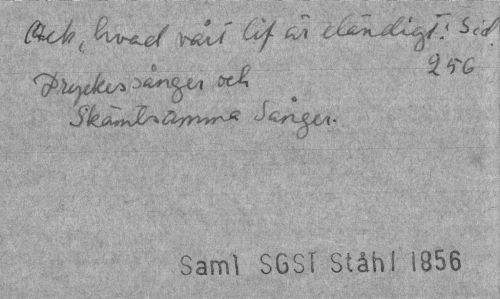 Ack, hvad vårt lif är eländigt! Sid.
256
Dryckessånger och
Skämtsamma Sånger.
Saml SGST Ståhl 1856